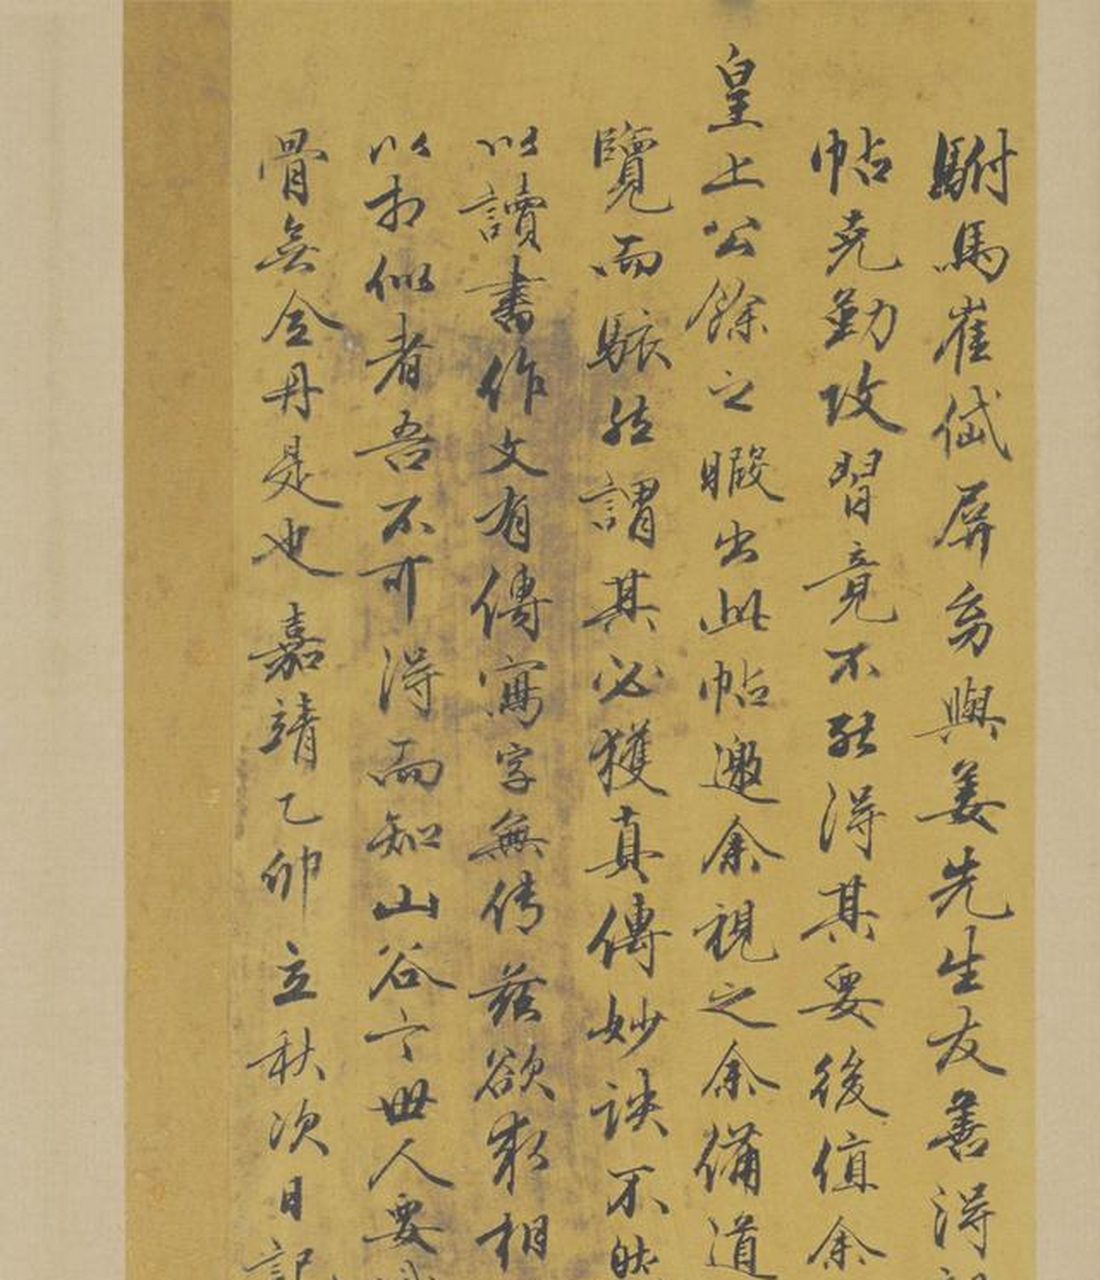 駙馬崔岱屏與姜先生友善得
帖克勤攻習竟不能得其要後值余
皇上公餘之暇出此帖邀余視之余備道
覽而駭然謂其必獲真傳妙訣不然
以讀書作文有傳寫字無传茲欲求相
以相似者吾不可得而知山谷云世人要
骨無金丹是也嘉靖乙卯立秋次日記